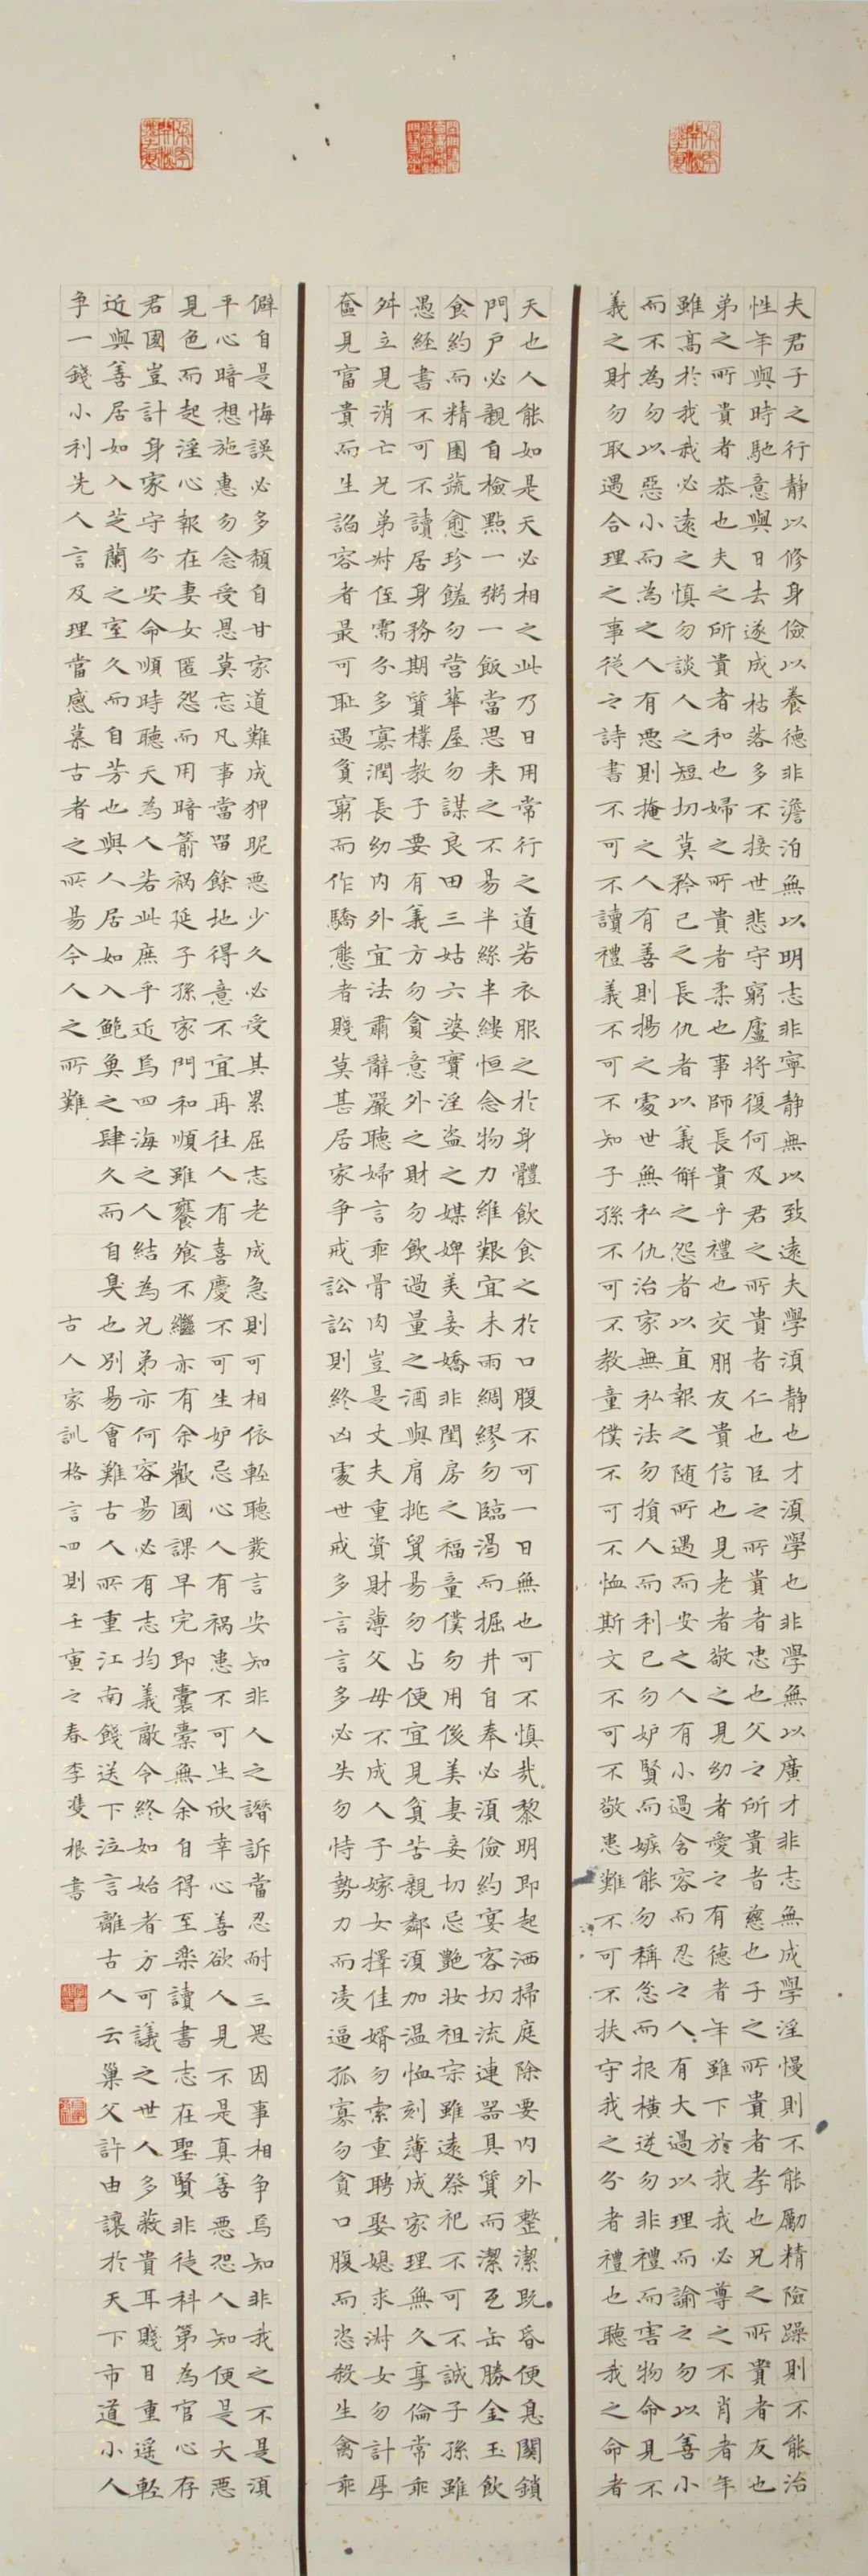 夫君子之行静以修身儉以養德非澹泊無以明志非寧静無以致遠夫學須静也才須學也非學無以廣才非志無成學淫慢則不能勵精險躁則不能治
性年與時馳意與日去遂成枯落多不接世悲守窮廬將復何及君之所貴者仁也臣之所貴者忠也父之所貴者慈也子之所貴者孝也兄之所貴者友也
弟之所貴者恭也夫之所貴者和也婦之所貴者柔也事師長貴乎禮也交朋友貴信也見老者敬之見幼者愛之有德者年雖下於我我必尊之不肖者年
雖高於我我必遠之慎勿談人之短切莫矜己之長仇者以義解之怨者以直報之随所遇而安之人有小過含容而忍之人有大過以理而諭之勿以善小
而不為勿以惡小而為之人有惡則掩之人有善則揚之處世無私仇治家無私法勿損人而利己勿妒賢而嫉能勿稱忿而报横逆勿非禮而害物命見不
義之財勿取遇合理之事從之詩書不可不讀禮義不可不知子孫不可不教童僕不可不恤斯文不可不敬患難不可不扶守我之分者禮也聽我之命者
天也人能如是天必相之此乃日用常行之道若衣服之於身體飲食之於口腹不可一日無也可不慎哉黎明即起洒掃庭除要内外整潔既昏便息關鎖
門户必親自檢點一粥一飯當思来之不易半絲半縷恒念物力維艱宜未雨綢繆勿臨渴而掘井自奉必須儉約宴客切流連器具質而潔瓦缶勝金玉飲
食約而精園蔬愈珍饈勿營華屋勿謀良田三姑六婆實淫盗之媒婢美妾嬌非閨房之福童僕勿用俊美妻妾切忌艷妆祖宗雖遠祭祀不可不誠子孫雖
愚經書不可不讀居身務期質樸教子要有義方勿貪意外之財勿飲過量之酒與肩挑貿易勿占便宜見貧苦親鄰須加温恤刻薄成家理無久享倫常乖
舛立見消亡兄弟对侄需分多寡潤長幼内外宜法肅辭嚴聽婦言乖骨肉豈是丈夫重資財薄父母不成人子嫁女擇佳婿勿索重聘娶媳求淑女勿計厚
奩見富貴而生諂容者最可耻遇貧窮而作驕態者賤莫甚居家争戒訟訟則終凶處世戒多言言多必失勿恃勢力而凌逼孤寡勿貪口腹而恣殺生禽乖
僻自是悔誤必多頹自甘家道難成狎昵悪少久必受其累屈志老成急則可相依軽聽發言安知非人之譖訴當忍耐三思因事相争焉知非我之不是須
平心暗想施惠勿念受恩莫忘凡事當留餘地得意不宜再往人有喜慶不可生妒忌心人有禍患不可生欣幸心善欲人見不是真善悪恐人知便是大悪
見色而起淫心報在妻女匿怨而用暗箭禍延子孫家門和順雖饔飧不繼亦有余歡國課早完即囊橐無余自得至樂讀書志在聖賢非徒科第為官心存
君國豈計身家守分安命順時聽天為人若此庶乎近焉四海之人結為兄弟亦何容易必有志均義敵令終如始者方可議之世人多蔽貴耳賤目重遥軽
近與善居如入芝蘭之室久而自芳也與人居如入鮑魚之肆久而自臭也别易會難古人所重江南餞送下泣言離古人云巢父許由讓於天下市道小人
争一錢小利先人言及理當感慕古者之所易今人之所難 古人家訓格言四則壬寅之春李雙根書